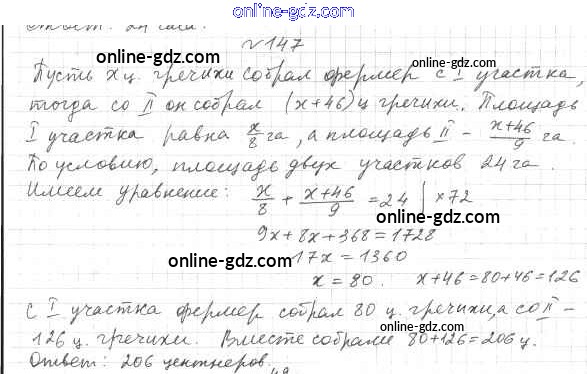 online-gdz.com
Ответ: 24
online-gdz.com
№147
Пусть х ц. гречихи собрал фермер с I участка,
тогда со II он собрал (х+46) ц гречихи. Площадь
I участка равна x/8 га, а площадь II - x+46/9 га.
По условию, площадь двух участков 24 га.
Имеем уравнение: x/8 + x+46/9 = 24 | ×72
9x+8x+368=1728
17x=1360
x=80. x+46=80+46=126
С I участка фермер собрал 80 ц. гречихи, а со II –
126 ц. гречихи. Вместе собрали 80+126=206 ц.
Ответ: 206 центнеров.
online-gdz.com
online-gdz.com
online-gdz.com
online-gdz.com
online-gdz.com
online-gdz.com
online-gdz.com